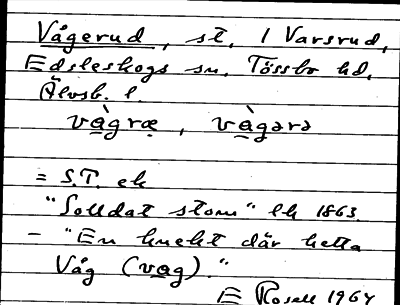 Vågerud, st. i Varsrud,
Edsleskogs sn. Tössbo hd,
Älvsb. l.
vàgræ, vàgərə
= S.T. ek
"Solldat stom" lk 1863
– "En knekt där hetta
Våg (vag)."
E Rosell 1964